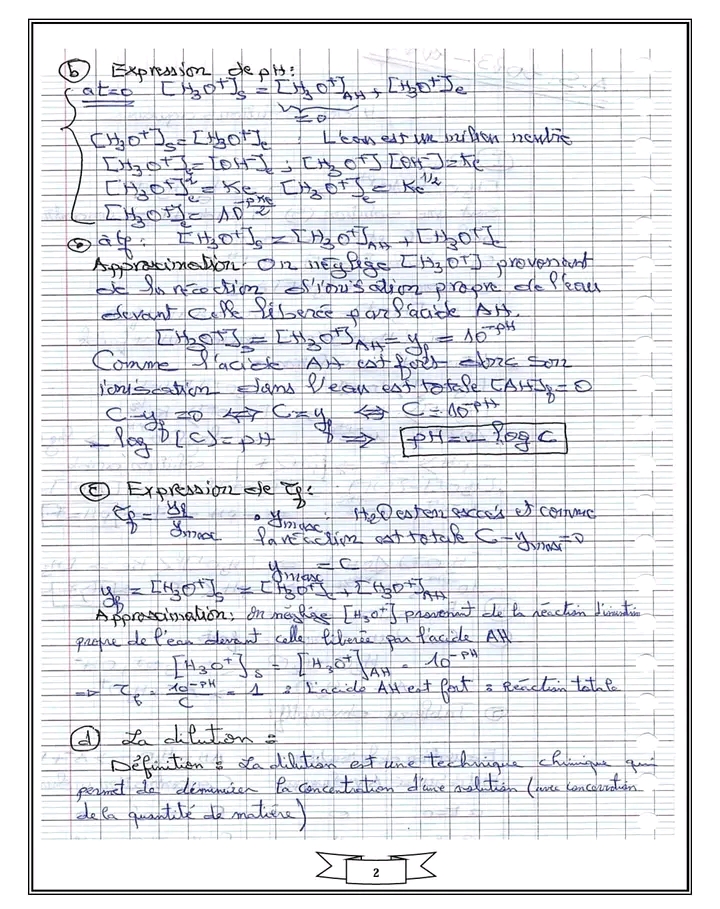 b) Expression de pH :
à t=0 [H₃O⁺]ₛ = [H₃O⁺]_AH + [H₃O⁺]e
= 0
[H₃O⁺]ₛ = [H₃O⁺]e : L'eau est un milieu neutre
[H₃O⁺]e = [OH⁻]e ; [H₃O⁺][OH⁻] = Ke
[H₃O⁺]e² = Ke [H₃O⁺]e = Ke^1/2
[H₃O⁺]e = 10^-pKe/2
à tf : [H₃O⁺]ₛ = [H₃O⁺]_AH + [H₃O⁺]e
Approximation : On néglige [H₃O⁺] provenant
de la réaction d'ionisation propre de l'eau
devant celle libérée par l'acide AH.
[H₃O⁺]ₛ = [H₃O⁺]_AH = yf = 10^-pH
Comme l'acide AH est fort donc son
ionisation dans l'eau est totale [AH]f = 0
C - yf = 0 ⟺ C = yf ⟺ C = 10^-pH
- log [C] = pH ⟹ pH = - log C
c) Expression de τf :
τf = yf / ymax • ymax : H₂O est en excès et comme
la réaction est totale C - ymax = 0
ymax = C
yf = [H₃O⁺]ₛ = [H₃O⁺]e + [H₃O⁺]_AH
Approximation : On néglige [H₃O⁺] provenant de la réaction d'ionisation
propre de l'eau devant celle libérée par l'acide AH
[H₃O⁺]ₛ = [H₃O⁺]_AH = 10^-pH
=> τf = 10^-pH / C = 1 : L'acide AH est fort : Réaction totale
d) La dilution :
Définition : La dilution est une technique chimique qui
permet de déminuier la concentration d'une solution (avec conservation
de la quantité de matière)
2